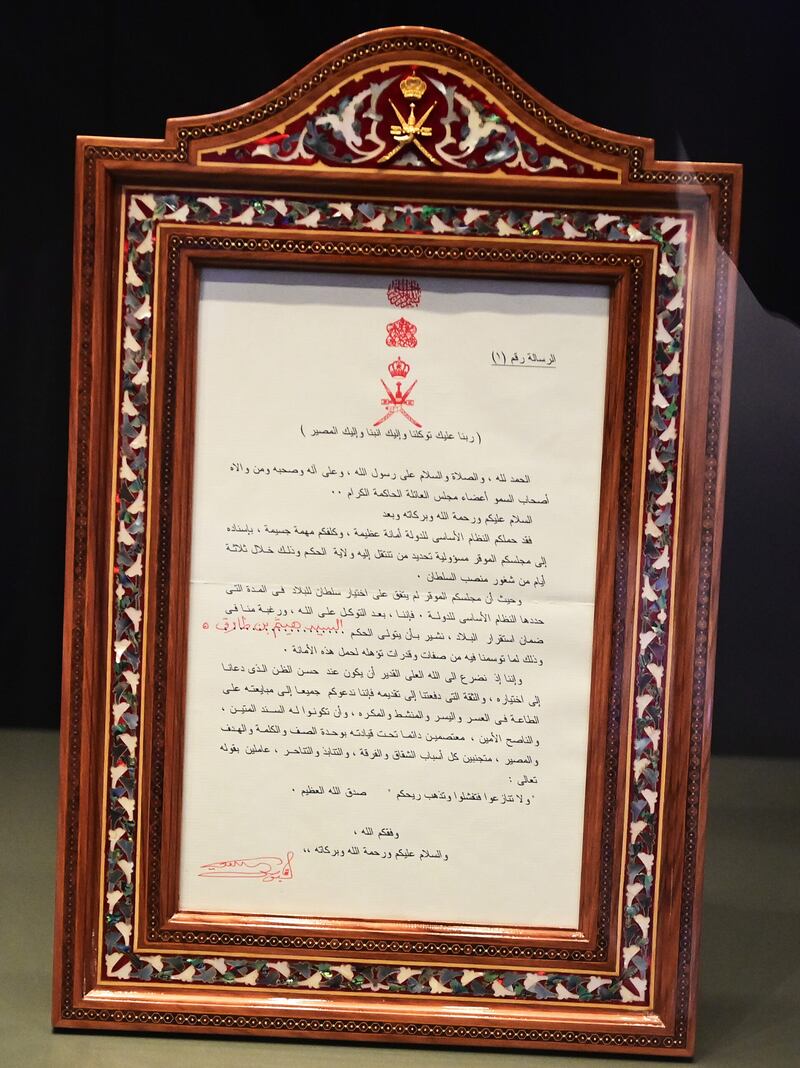 الرسالة رقم (١)
( ربنا عليك توكلنا وإليك انبنا وإليك المصير )
الحمد لله ، والصلاة والسلام على رسول الله ، وعلى آله وصحبه ومن والاه
أصحاب السمو أعضاء مجلس العائلة الحاكمة الكرام ٠٠
السلام عليكم ورحمة الله وبركاته وبعد
فقد حملكم النظام الأساسى للدولة أمانة عظيمة ، وكلفكم مهمة جسيمة ، بإسناده
إلى مجلسكم الموقر مسؤولية تحديد من تنتقل إليه ولاية الحكم وذلك خلال ثلاثة
أيام من شغور منصب السلطان ٠
وحيث أن مجلسكم الموقر لم يتفق على اختيار سلطان للبلاد فى المدة التى
حددها النظام الأساسى للدولة ٠ فإننا ، بعد التوكل على الله ، ورغبة منا فى
ضمان استقرار البلاد ، نشير بأن يتولى الحكم السيد هيثم بن طارق
وذلك لما توسمنا فيه من صفات وقدرات تؤهله لحمل هذه الأمانة ٠
وإننا إذ نضرع الى الله العلى القدير أن يكون عند حسن الظن الذى دعانا
إلى اختياره ، والثقة التى دفعتنا إلى تقديمه فإننا ندعوكم جميعا إلى مبايعته على
الطاعة فى العسر واليسر والمنشط والمكره ، وأن تكونوا له السند المتين ،
والناصح الأمين ، معتصمين دائما تحت قيادته بوحدة الصف والكلمة والهدف
والمصير ، متجنبين كل أسباب الشقاق والفرقة ، والتنابذ والتناحر ، عاملين بقوله
تعالى :
"ولا تنازعوا فتفشلوا وتذهب ريحكم " صدق الله العظيم ٠
وفقكم الله ،
والسلام عليكم ورحمة الله وبركاته ،،